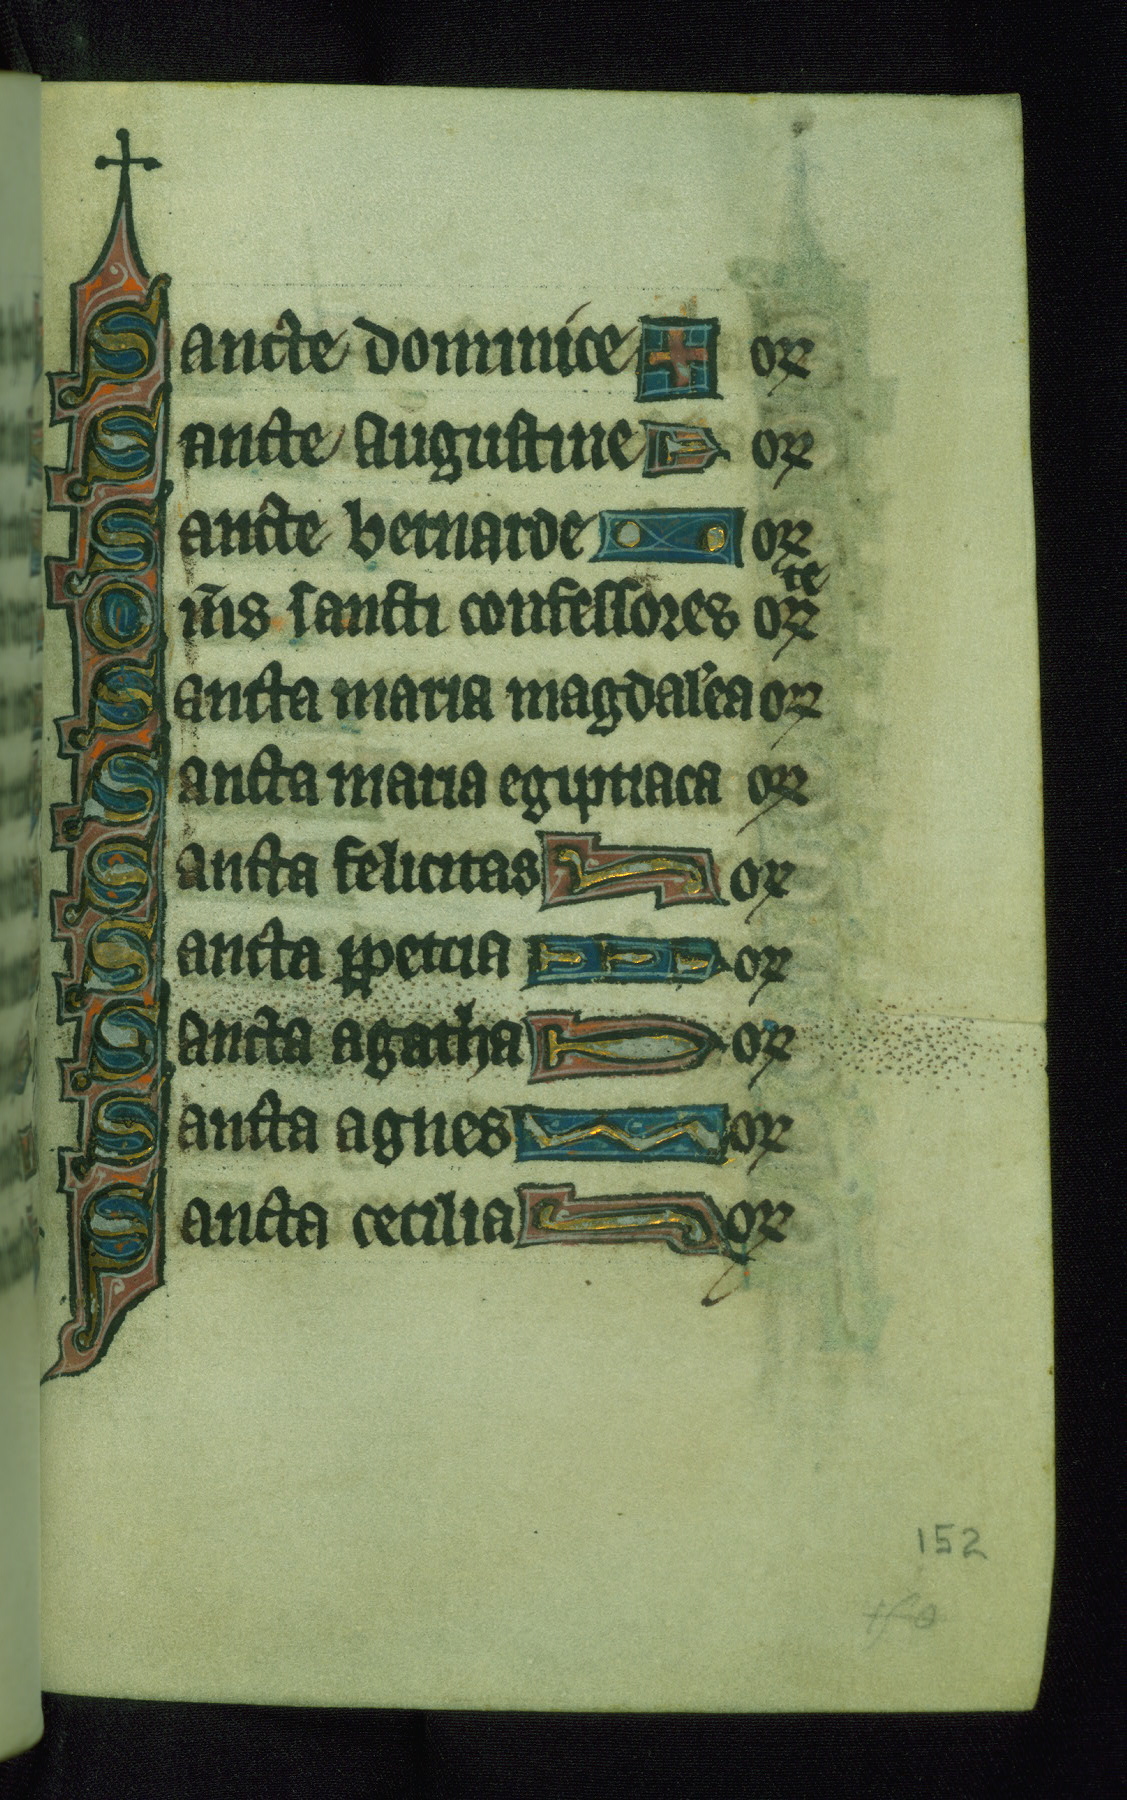 Sancte dominice or
Sancte Augustine or
Sancte bernarde or
Om̄s sancti confessores orte
Sancta maria magdal'ea or
Sancta maria egiptiaca or
Sancta felicitas or
Sancta ꝑpetua or
Sancta agatha or
Sancta agnes or
Sancta cecilia or
152